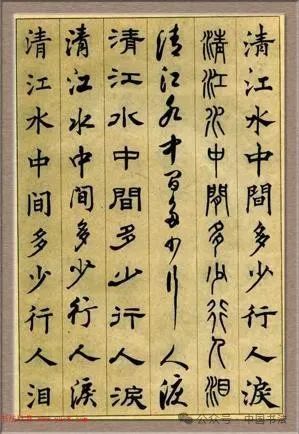 清江水中間多少行人淚
清江水中間多少行人泪
清江水中間多少行人淚
清江水中間多少行人淚
清江水中间多少行人淚
清江水中间多少行人泪
公众号·中国书法